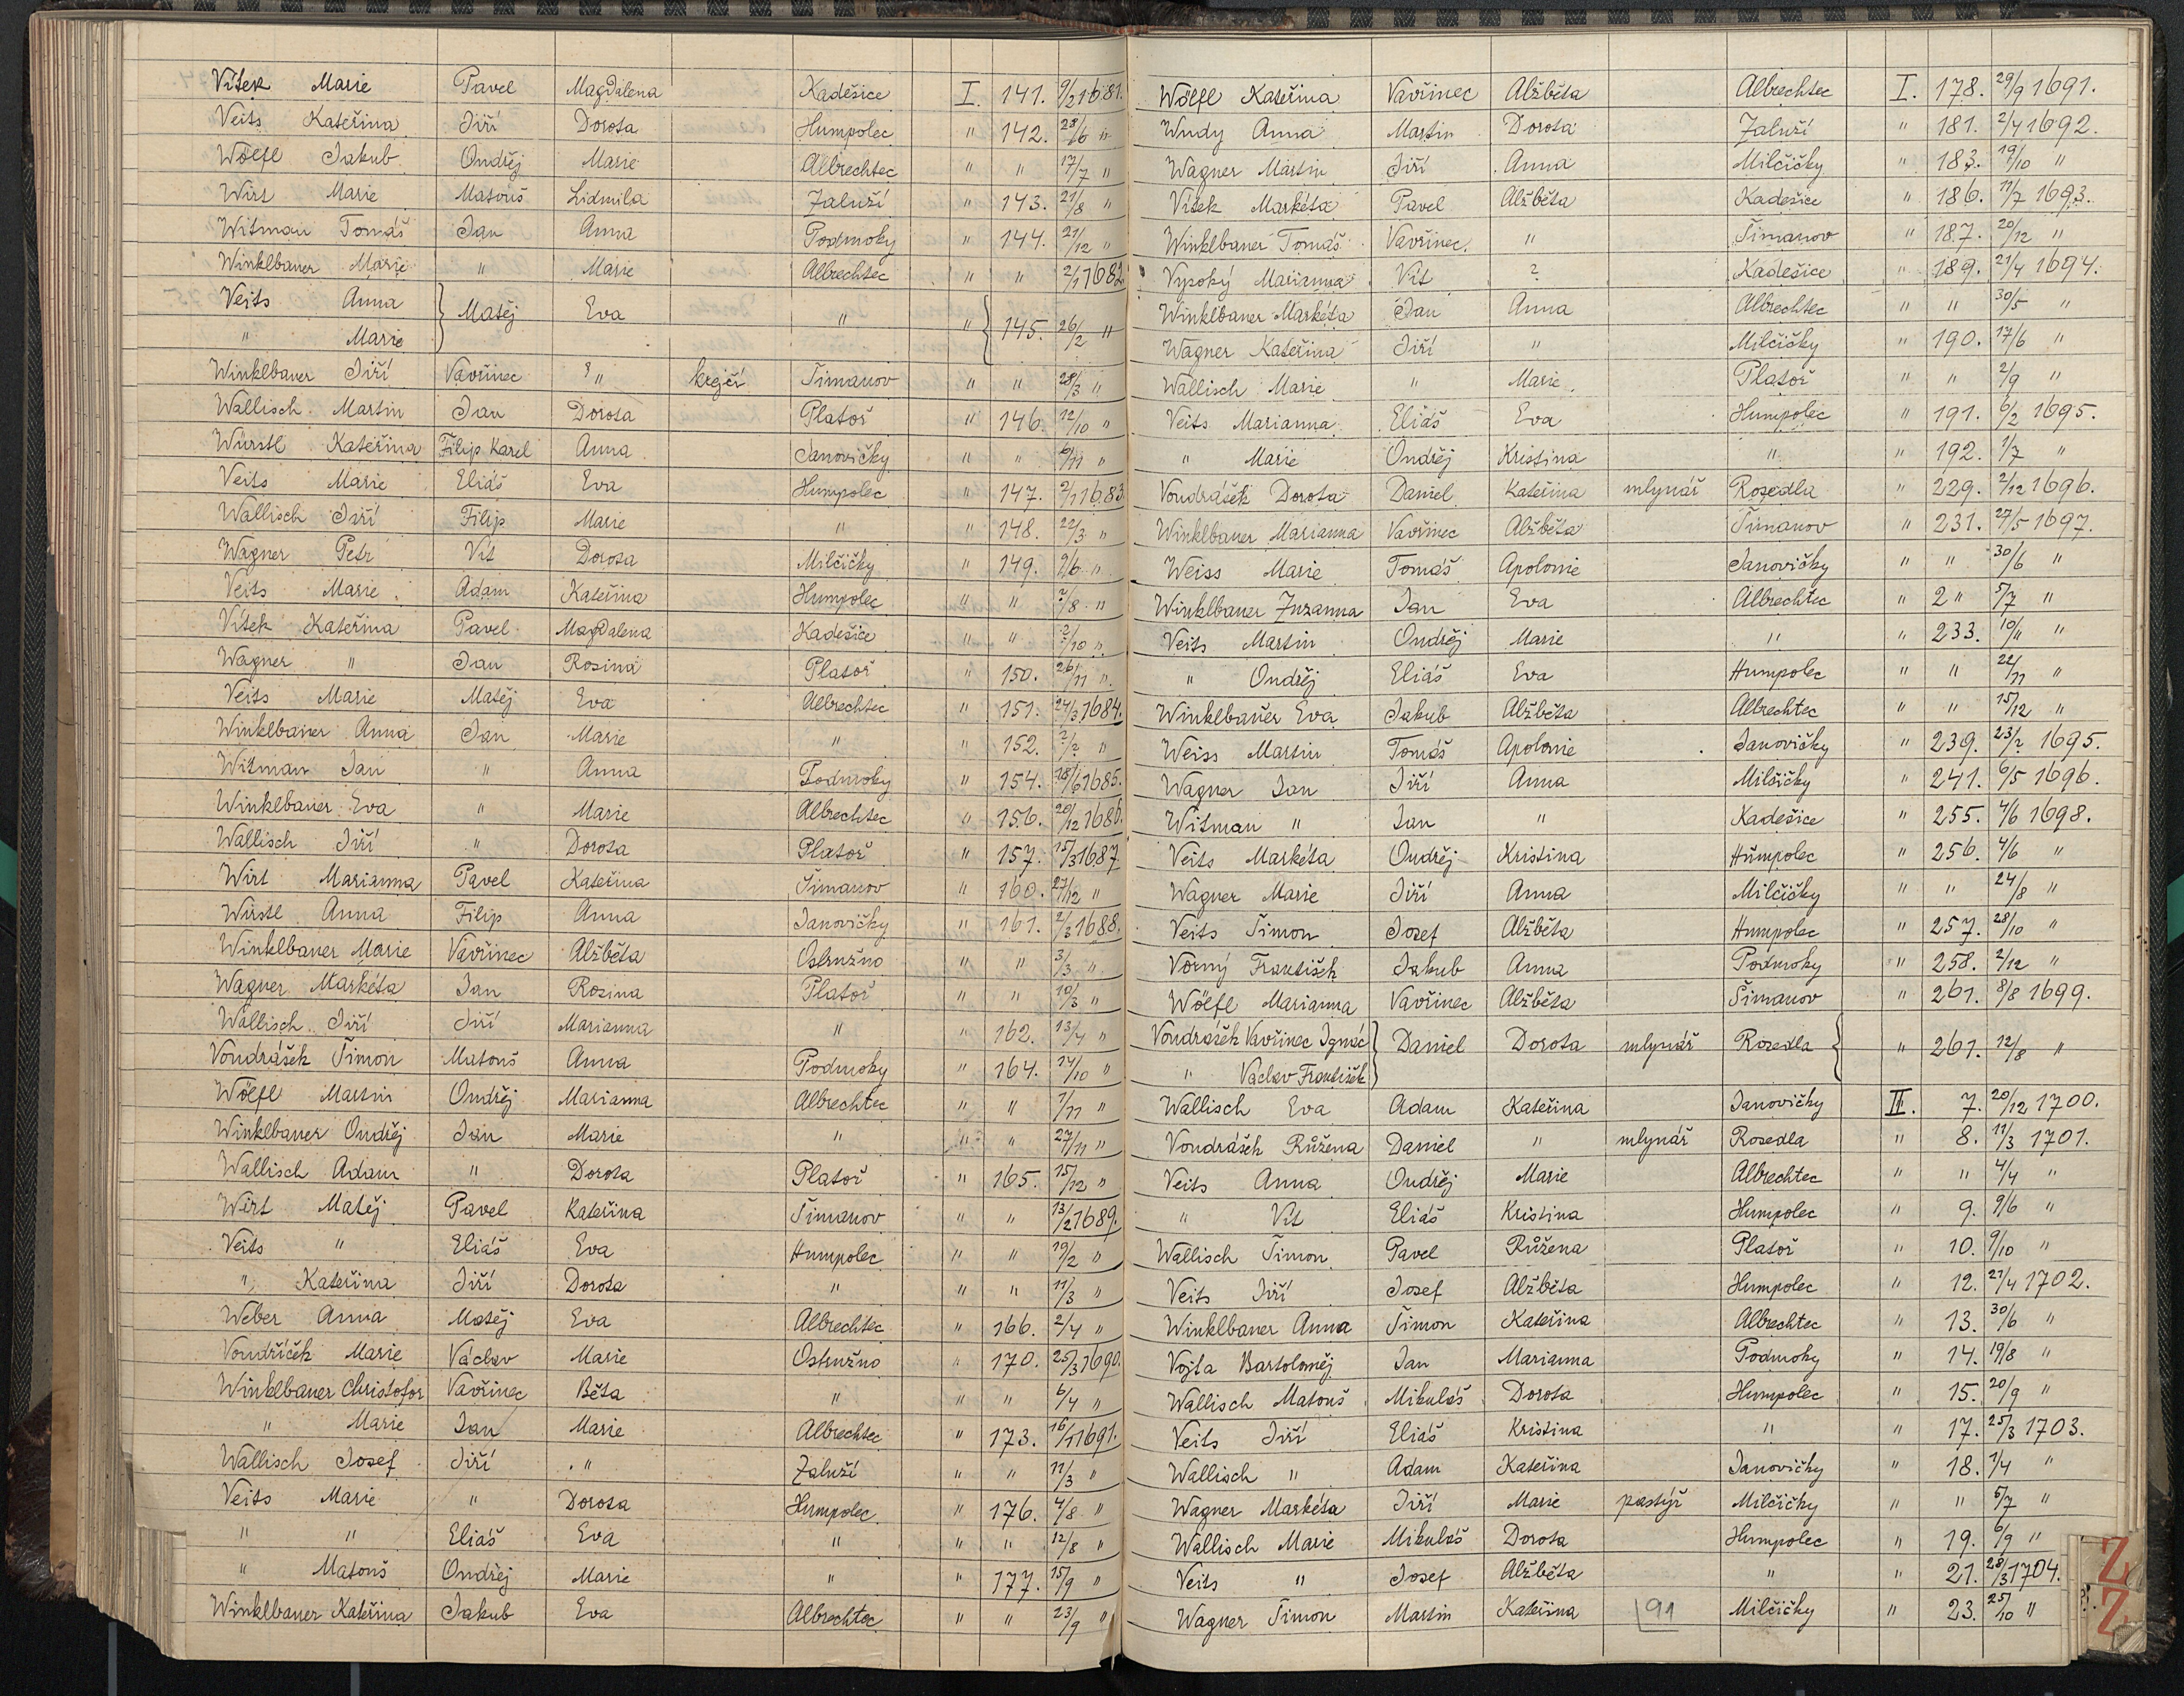 Vítek Marie Pavel Magdalena Kadešice I. 141. 9/2 1681.
Veits Kateřina Jiří Dorota Humpolec " 142. 28/6 "
Wölfl Jakub Ondřej Marie Albrechtec " " 17/7 "
Wirt Marie Matouš Lidmila Zaluží " 143. 21/8 "
Witman Tomáš Jan Anna Podmoky " 144. 21/12 "
Winklbauer Marie " Marie Albrechtec " " 2/1 1682.
Veits Anna } Matěj Eva " " { 145. 26/2 "
" Marie
Winklbauer Jiří Vavřinec ? " krejčí Šimanov " " 28/3 "
Wallisch Martin Jan Dorota Platoř " 146. 12/10 "
Würstl Kateřina Filip Karel Anna Janovičky " " 6/11 "
Veits Marie Eliáš Eva Humpolec " 147. 2/1 1683.
Wallisch Jiří Filip Marie " " 148. 22/3 "
Wagner Petr Vít Dorota Milčičky " 149. 9/6 "
Veits Marie Adam Kateřina Humpolec " " ?/8 "
Vítek Kateřina Pavel Magdalena Kadešice " " ?/10 "
Wagner " Jan Rosina Platoř " 150. 26/11 "
Veits Marie Matěj Eva Albrechtec " 151. 24/3 1684.
Winklbauer Anna Jan Marie " " 152. ?/? "
Witman Jan " Anna Podmoky " 154. 18/6 1685.
Winklbauer Eva " Marie Albrechtec " 156. 20/12 1686.
Wallisch Jiří " Dorota Platoř " 157. 15/3 1687.
Wirt Marianna Pavel Kateřina Šimanov " 160. 27/12 "
Wirstl Anna Filip Anna Janovičky " 161. 2/3 1688.
Winklbauer Marie Vavřinec Alžběta Ostružno " " 3/3 "
Wagner Markéta Jan Rosina Platoř " " 10/3 "
Wallisch Jiří Jiří Marianna " " 162. 13/4 "
Vondrášek Šimon Matouš Anna Podmoky " 164. 14/10 "
Wölfl Martin Ondřej Marianna Albrechtec " " 1/11 "
Winklbauer Ondřej Jan Marie " " " 27/11 "
Wallisch Adam " Dorota Platoř " 165. 15/12 "
Wirt Matěj Pavel Kateřina Šimanov " " 13/2 1689.
Veits " Eliáš Eva Humpolec " " 19/2 "
" Kateřina Jiří Dorota " " " 11/3 "
Weber Anna Matěj Eva Albrechtec " 166. 2/4 "
Vondříček Marie Václav Marie Ostružno " 170. 25/3 1690.
Winklbauer Christofor Vavřinec Běta " " " 6/4 "
" Marie Jan Marie Albrechtec " 173. 16/1 1691.
Wallisch Josef Jiří " Zaluží " " 11/3 "
Veits Marie " Dorota Humpolec " 176. 4/8 "
" " Eliáš Eva " " " 12/8 "
" Matouš Ondřej Marie " " 177. 15/9 "
Winklbauer Kateřina Jakub Eva Albrechtec " " 23/9 "
Wölfl Kateřina Vavřinec Alžběta Albrechtec I. 178. 29/9 1691.
Wudy Anna Martin Dorota Zaluží " 181. 2/4 1692.
Wagner Martin Jiří Anna Milčičky " 183. 19/10 "
Vítek Markéta Pavel Alžběta Kadešice " 186. 11/7 1693.
Winklbauer Tomáš Vavřinec. " Šimanov " 187. 20/12 "
Vysoký Marianna Vít ? Kadešice " 189. 21/4 1694.
Winklbauer Markéta Jan Anna Albrechtec " " 30/5 "
Wagner Kateřina Jiří " Milčičky " 190. 17/6 "
Wallisch Marie " Marie Platoř " " 2/9 "
Veits Marianna Eliáš Eva Humpolec " 191. 6/2 1695.
" Marie Ondřej Kristina " " 192. 1/7 "
Vondrášek Dorota Daniel Kateřina mlynář Rosedla " 229. 2/12 1696.
Winklbauer Marianna Vavřinec Alžběta Šimanov " 231. 27/5 1697.
Weiss Marie Tomáš Apolonie Janovičky " " 30/6 "
Winklbauer Zuzanna Jan Eva Albrechtec " 2 " 5/7 "
Veits Martin Ondřej Marie " " 233. 10/11 "
" Ondřej Eliáš Eva Humpolec " " 22/11 "
Winklbauer Eva Jakub Alžběta Albrechtec " " 15/12 "
Weiss Martin Tomáš Apolonie Janovičky " 239. 23/2 1695.
Wagner Jan Jiří Anna Milčičky " 241. 6/5 1696.
Witman " Jan " Kadešice " 255. 4/6 1698.
Veits Markéta Ondřej Kristina Humpolec " 256. 4/6 "
Wagner Marie Jiří Anna Milčičky " " 24/8 "
Veits Šimon Josef Alžběta Humpolec " 257. 28/10 "
Vorný František Jakub Anna Podmoky " 258. 2/12 "
Wölfl Marianna Vavřinec Alžběta Šimanov " 261. 8/8 1699.
Vondrášek Vavřinec Ignác } Daniel Dorota mlynář Rosedla { " 261. 12/8 "
" Václav František
Wallisch Eva Adam Kateřina Janovičky II. 7. 20/12 1700.
Vondrášek Růžena Daniel " mlynář Rosedla " 8. 11/3 1701.
Veits Anna Ondřej Marie Albrechtec " " 4/4 "
" Vít Eliáš Kristina Humpolec " 9. 9/6 "
Wallisch Šimon Pavel Růžena Platoř " 10. 9/10 "
Veits Jiří Josef Alžběta Humpolec " 12. 21/4 1702.
Winklbauer Anna Šimon Kateřina Albrechtec " 13. 30/6 "
Vojta Bartoloměj Jan Marianna Podmoky " 14. 19/8 "
Wallisch Matouš Mikuláš Dorota Humpolec " 15. 20/9 "
Veits Jiří Eliáš Kristina " " 17. 25/3 1703.
Wallisch " Adam Kateřina Janovičky " 18. 1/4 "
Wagner Markéta Jiří Marie pastýř Milčičky " " 5/7 "
Wallisch Marie Mikuláš Dorota Humpolec " 19. 6/9 "
Veits " Josef Alžběta " " 21. 28/3 1704.
Wagner Šimon Martin Kateřina 91 Milčičky " 23. 25/10 "
Z
Ž